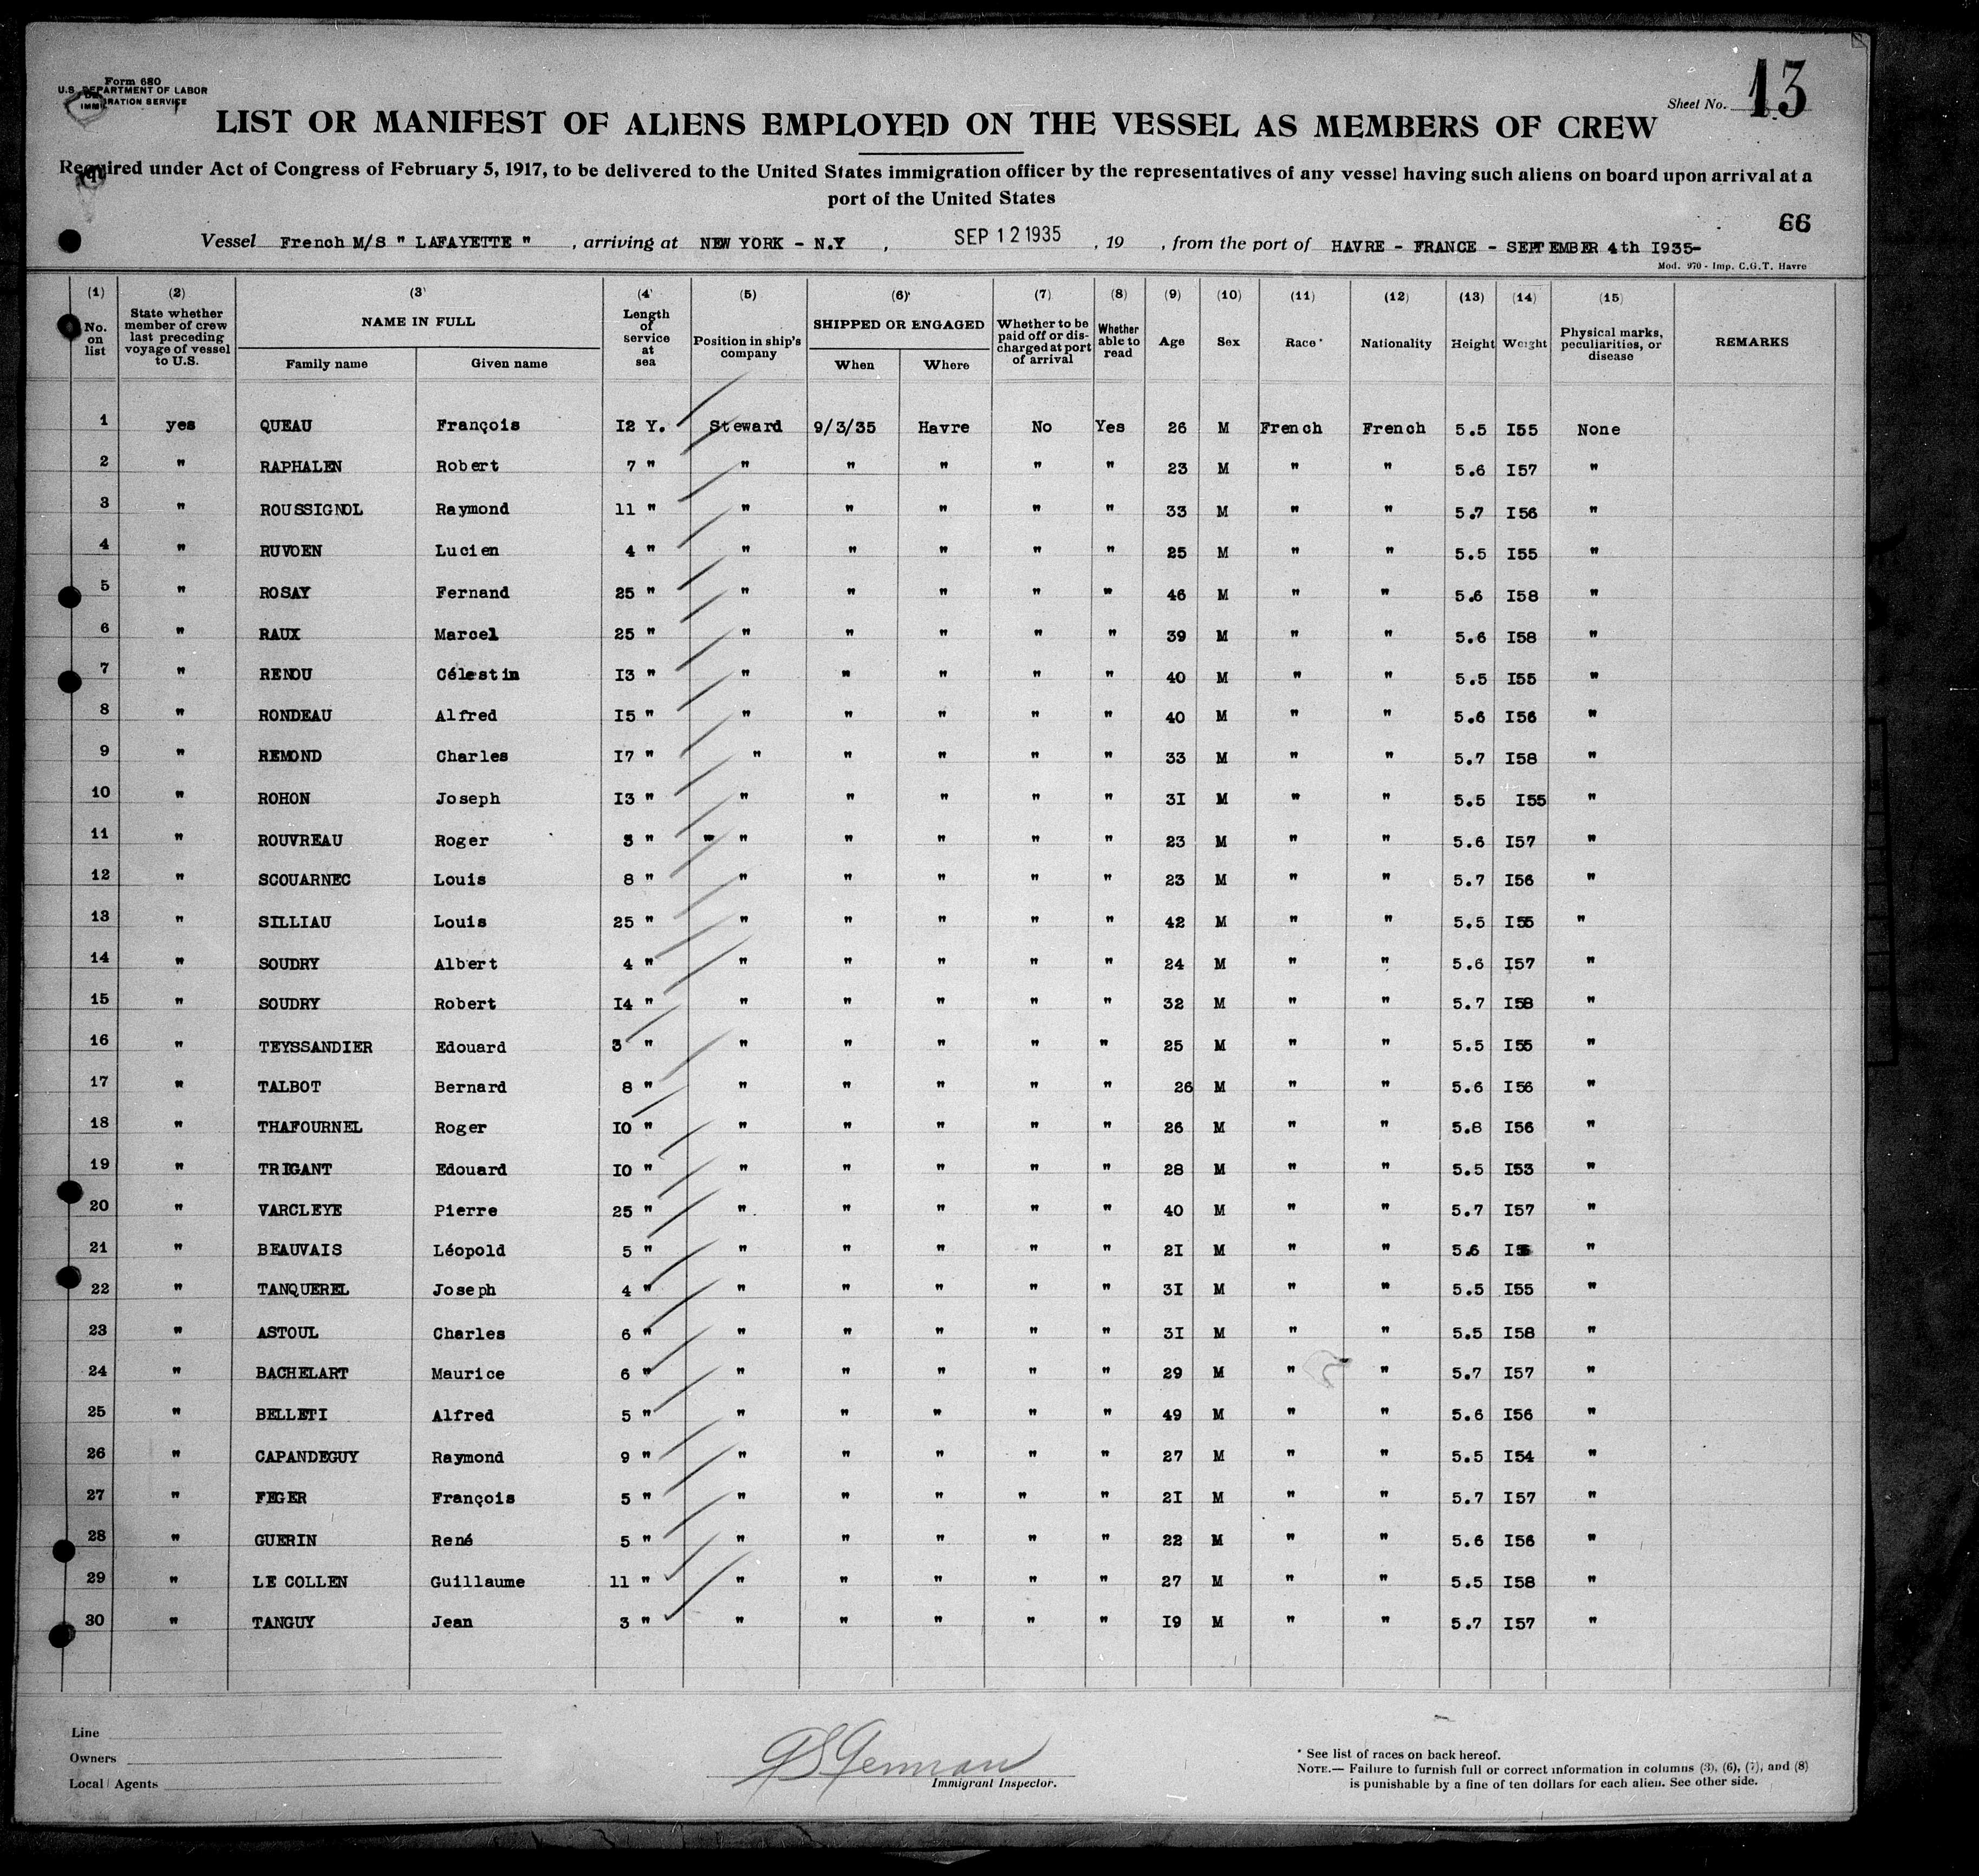 Form 680
U.S. DEPARTMENT OF LABOR
IMMIGRATION SERVICE
Sheet No. 13
LIST OR MANIFEST OF ALIENS EMPLOYED ON THE VESSEL AS MEMBERS OF CREW
Required under Act of Congress of February 5, 1917, to be delivered to the United States immigration officer by the representatives of any vessel having such aliens on board upon arrival at a
port of the United States
66
Vessel French M/S " LAFAYETTE " , arriving at NEW YORK - N.Y , SEP 12 1935 , 19 , from the port of HAVRE - FRANCE - SEPTEMBER 4th I935-
Mod. 970 - Imp. C.G.T. Havre
(1) (2) (3) (4) (5) (6) (7) (8) (9) (10) (11) (12) (13) (14) (15)
No. on list State whether member of crew last preceding voyage of vessel to U.S. NAME IN FULL Length of service at sea Position in ship's company SHIPPED OR ENGAGED Whether to be paid off or discharged at port of arrival Whether able to read Age Sex Race* Nationality Height Weight Physical marks, peculiarities, or disease REMARKS
Family name Given name When Where
1 yes QUEAU François I2 Y. Steward 9/3/35 Havre No Yes 26 M French French 5.5 I55 None
2 " RAPHALEN Robert 7 " " " " " " 23 M " " 5.6 I57 "
3 " ROUSSIGNOL Raymond 11 " " " " " " 33 M " " 5.7 I56 "
4 " RUVOEN Lucien 4 " " " " " " 25 M " " 5.5 I55 "
5 " ROSAY Fernand 25 " " " " " " 46 M " " 5.6 I58 "
6 " RAUX Marcel 25 " " " " " " 39 M " " 5.6 I58 "
7 " RENOU Célestin I3 " " " " " " 40 M " " 5.5 I55 "
8 " RONDEAU Alfred I5 " " " " " " 40 M " " 5.6 I56 "
9 " REMOND Charles I7 " " " " " " 33 M " " 5.7 I58 "
10 " ROHON Joseph I3 " " " " " " 3I M " " 5.5 I55 "
11 " ROUVREAU Roger " " " " " " " 23 M " " 5.6 I57 "
12 " SCOUARNEC Louis 8 " " " " " " 23 M " " 5.7 I56 "
13 " SILLIAU Louis 25 " " " " " " 42 M " " 5.5 I55 "
14 " SOUDRY Albert 4 " " " " " " 24 M " " 5.6 I57 "
15 " SOUDRY Robert I4 " " " " " " 32 M " " 5.7 I58 "
16 " TEYSSANDIER Edouard 3 " " " " " " 25 M " " 5.5 I55 "
17 " TALBOT Bernard 8 " " " " " " 26 M " " 5.6 I56 "
18 " THAFOURNEL Roger IO " " " " " " 26 M " " 5.8 I56 "
19 " TRIGANT Edouard IO " " " " " " 28 M " " 5.5 I53 "
20 " VARCLEYE Pierre 25 " " " " " " 40 M " " 5.7 I57 "
21 " BEAUVAIS Léopold 5 " " " " " " 2I M " " 5.6 "
22 " TANQUEREL Joseph 4 " " " " " " 3I M " " 5.5 I55 "
23 " ASTOUL Charles 6 " " " " " " 3I M " " 5.5 I58 "
24 " BACHELART Maurice 6 " " " " " " 29 M " " 5.7 I57 "
25 " BELLETI Alfred 5 " " " " " " 49 M " " 5.6 I56 "
26 " CAPANDEGUY Raymond 9 " " " " " " 27 M " " 5.5 I54 "
27 " FEGER François 5 " " " " " " 2I M " " 5.7 I57 "
28 " GUERIN René 5 " " " " " " 22 M " " 5.6 I56 "
29 " LE COLLEN Guillaume 11 " " " " " " 27 M " " 5.5 I58 "
30 " TANGUY Jean 3 " " " " " " I9 M " " 5.7 I57 "
Line
Owners
Local Agents
Immigrant Inspector.
* See list of races on back hereof.
NOTE.— Failure to furnish full or correct information in columns (3), (6), (7), and (8)
is punishable by a fine of ten dollars for each alien. See other side.